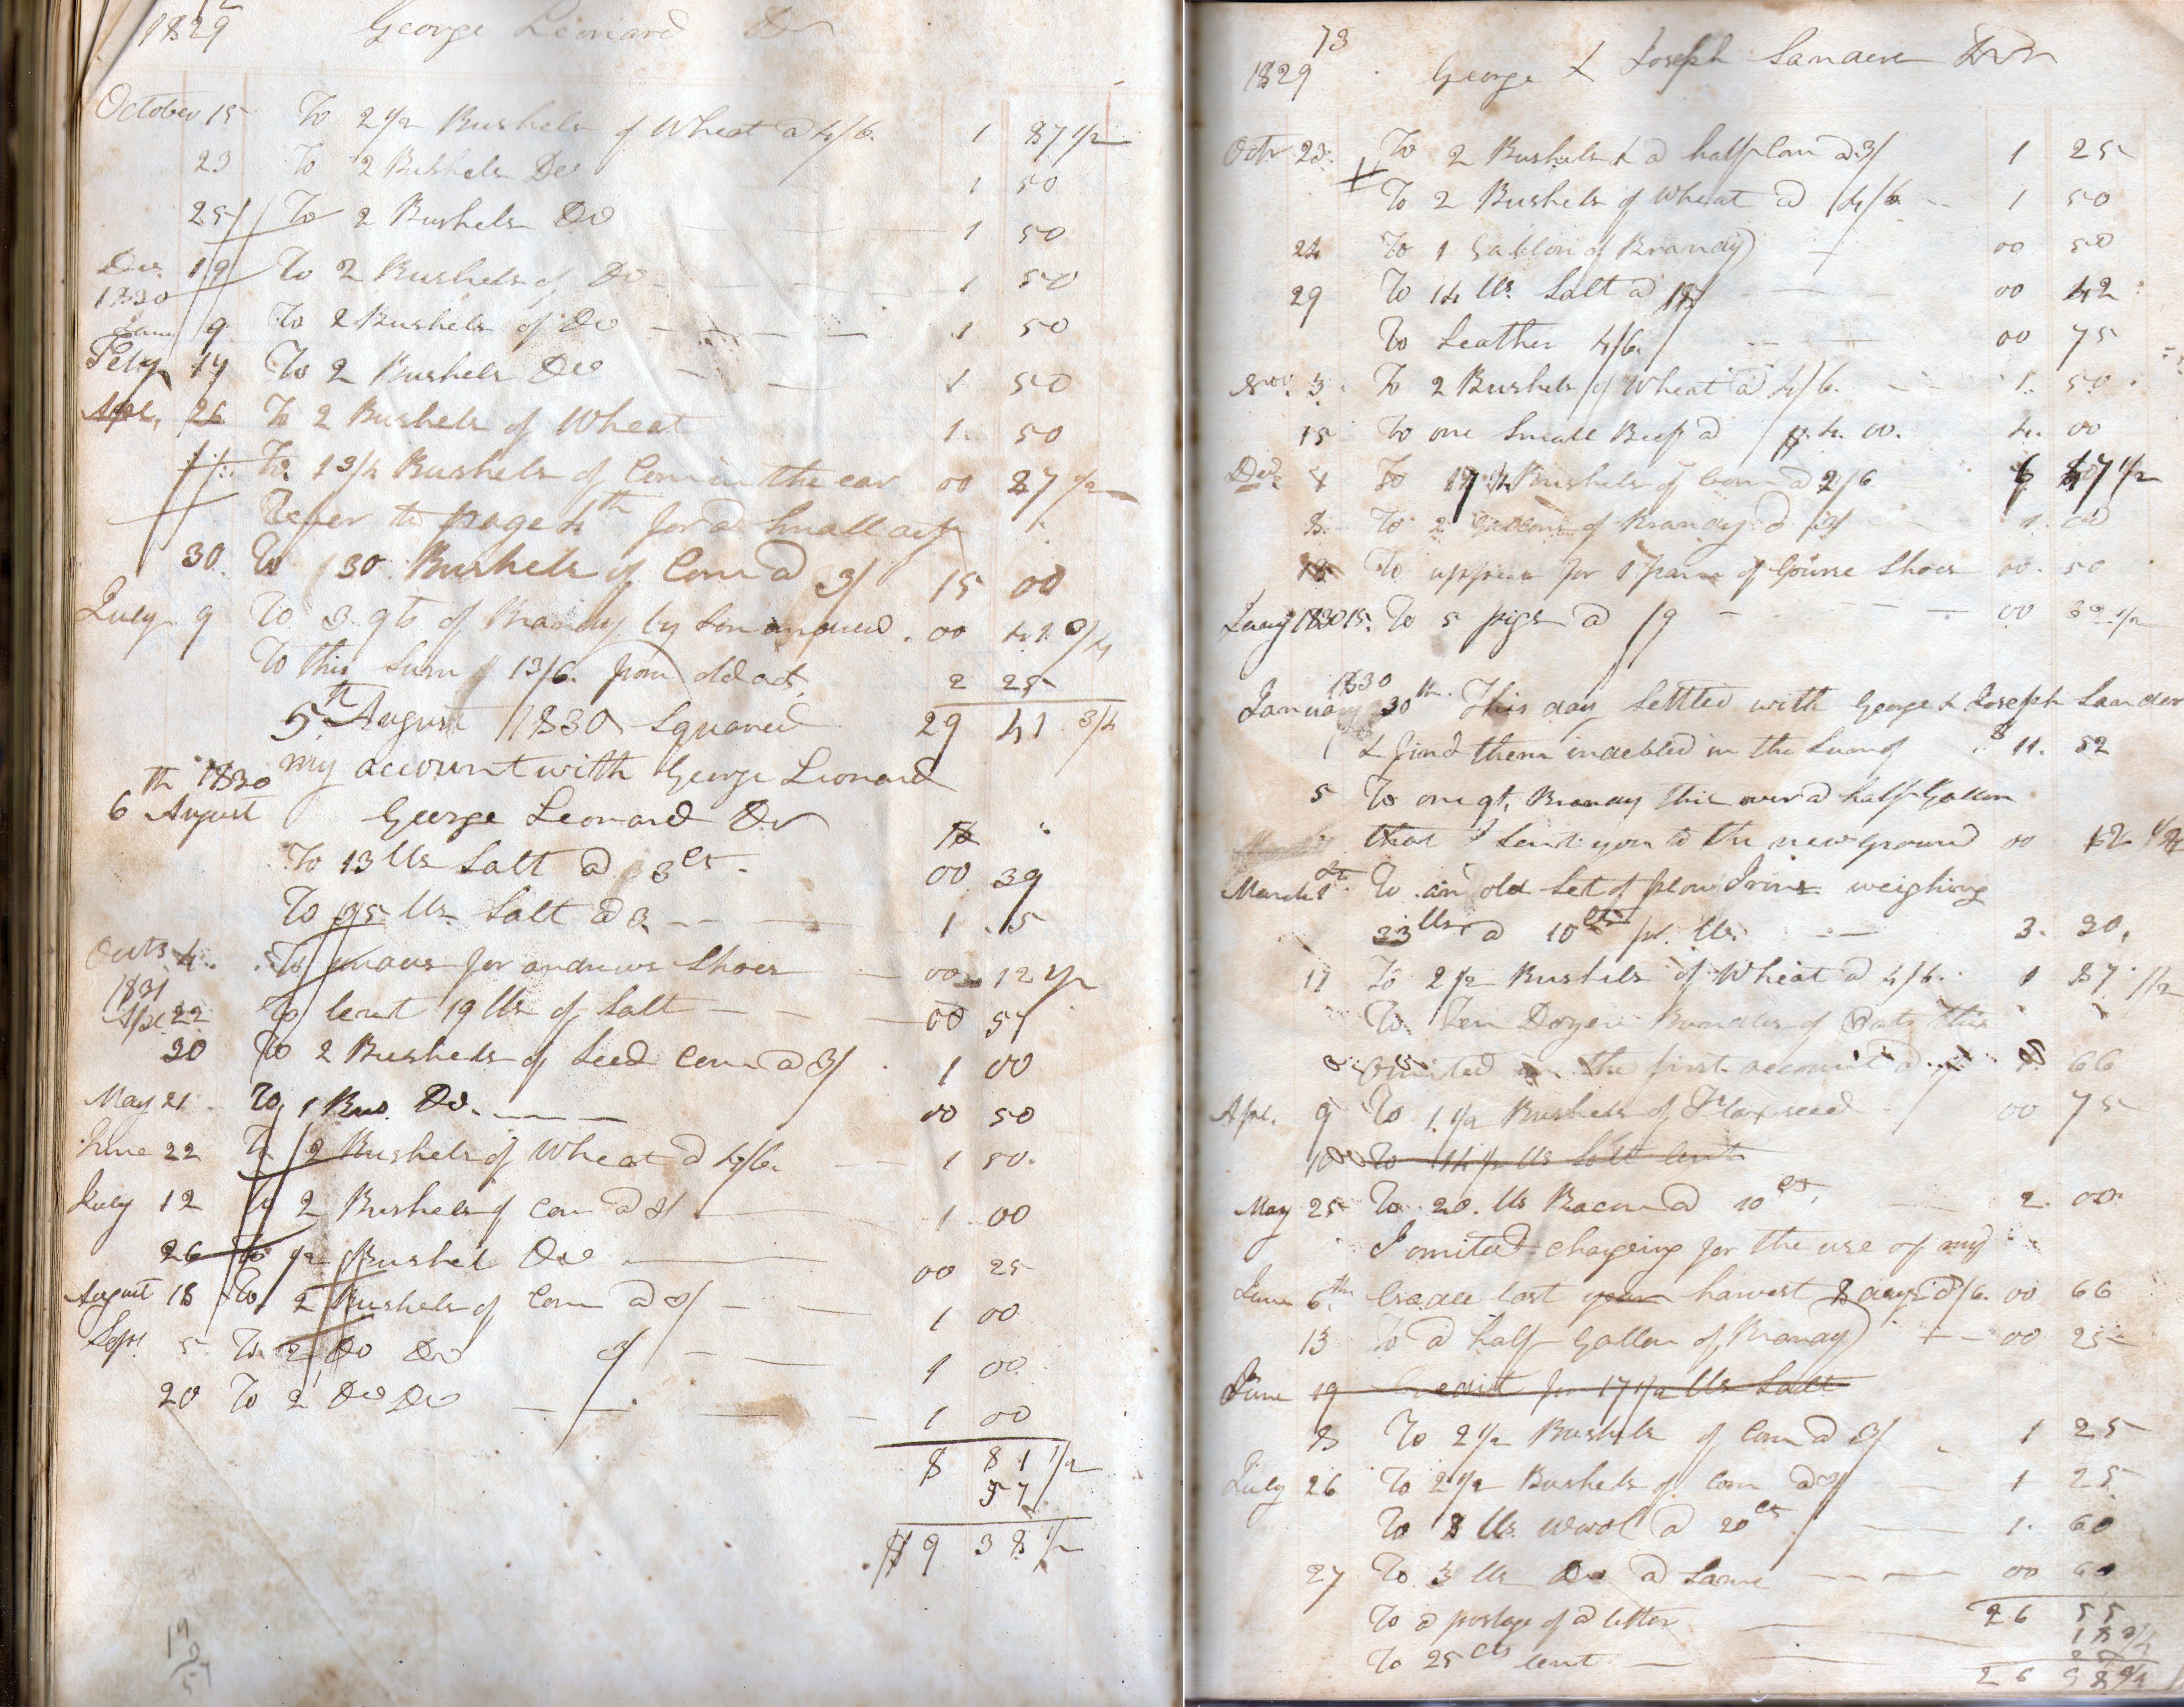 1829 George Leonard Dr
October 15 To 2 1/2 Bushels of Wheat @ 4/6 1 87 1/2
23 To 2 Bushels Do 1 50
25 To 2 Bushels Do 1 50
Dec. 19 To 2 Bushels of Do 1 50
1830
Jan 9 To 2 Bushels of Do 1 50
Feby 17 To 2 Bushels Do 1 50
Apl. 26 To 2 Bushels of Wheat 1. 50
To 1 3/4 Bushels of Corn in the ear 00 27 1/2
Refer to page 4th for a Small act
30. To 30 Bushels of Corn @ 3/ 15 00
July 9 To 3 qts of Brandy by Son andrew. 00 41 3/4
To this Sum of 13/6. from old act. 2 25
5th August 1830 Squared 29 41 3/4
my account with George Leonard
th 1830
6 August George Leonard Dr
To 13 lls Salt @ 3 cts. 00 39
To 35 lls Salt @ 3. 1. 5
Octr 4. To for andrews Shoes 00 12 1/2
1831
Apl. 22 To lent 19 lls of Salt 00 57
30 To 2 Bushels of Seed Corn @ 3/ 1 00
May 21 To 1 Bus. Do. 00 50
June 22 To 2 Bushels of Wheat @ 4/6. 1 50.
July 12 To 2 Bushels of Corn @ 3/ 1. 00
26 To 1/2 Bushel Do 00 25
August 18 To 2 Bushels of Corn @ 3/ 1 00
Sept 5 To 2 Do Do 3/ 1 00
20 To 2 Do Do 1 00
8 81 1/2
57
$ 9 38 1/2
19
3
57
73
1829 George & Joseph Sanders Dr
Octr 23. To 2 Bushels & a half Corn @ 3/ 1 25
To 2 Bushels of Wheat @ 4/6 1 50
24 To 1 Gallon of Brandy 00 50
29 To 14 lls. Salt @ 00 42
To Leather 4/6. 00 75
Nov. 3. To 2 Bushels of Wheat @ 4/6. 1. 50.
15 To one Small Beef @ $4.00. 4. 00
Dec. To Bushels of Corn @ 2/6
8. To 2 Gallons of Brandy @ 3/ 1. 00
To uppers for 1 pare of Course Shoes 00. 50
Jany 1830 15. To 5 pigs @ /9
1830
January 30th. This day Settled with George & Joseph Sander
& find them indebted in the Sum of $ 11. 52
5 To one qt. Brandy this over a half Gallon
that I Sent you to the new ground 00 12 1/2
March 1st. To an old Set of plow Irins weighing
33 lls @ 10 cts pr. lls. 3. 30.
17 To 2 1/2 Bushels of Wheat @ 4/6. 1 87 1/2
To ten Dozen Bundles of Oats this
omited in the first account @ 66
Apl. 9 To 1. 1/2 Bushels of Flaxseed 00 75
10 To 14 1/2 lls Salt lent
May 25 To 20. lls Bacon @ 10 cts. 2. 00.
I omited chargeing for the use of my
June 6th Cradle last year harvest 8 days @ /6. 00 66
13 To a half Gallon of Brandy 00 25
June 19 Credit for 17 1/2 lls Salt
8 To 2 1/2 Bushels of Corn @ 3/ 1 25
July 26 To 2 1/2 Bushels of Corn @ 3/ 1 25
To 8 lls wool @ 20 cts 1. 60
27 To 3 lls Do @ Same 00 60
To a postage of a letter 26 55
To 25 cts lent 18 3/4
25
26 98 3/4